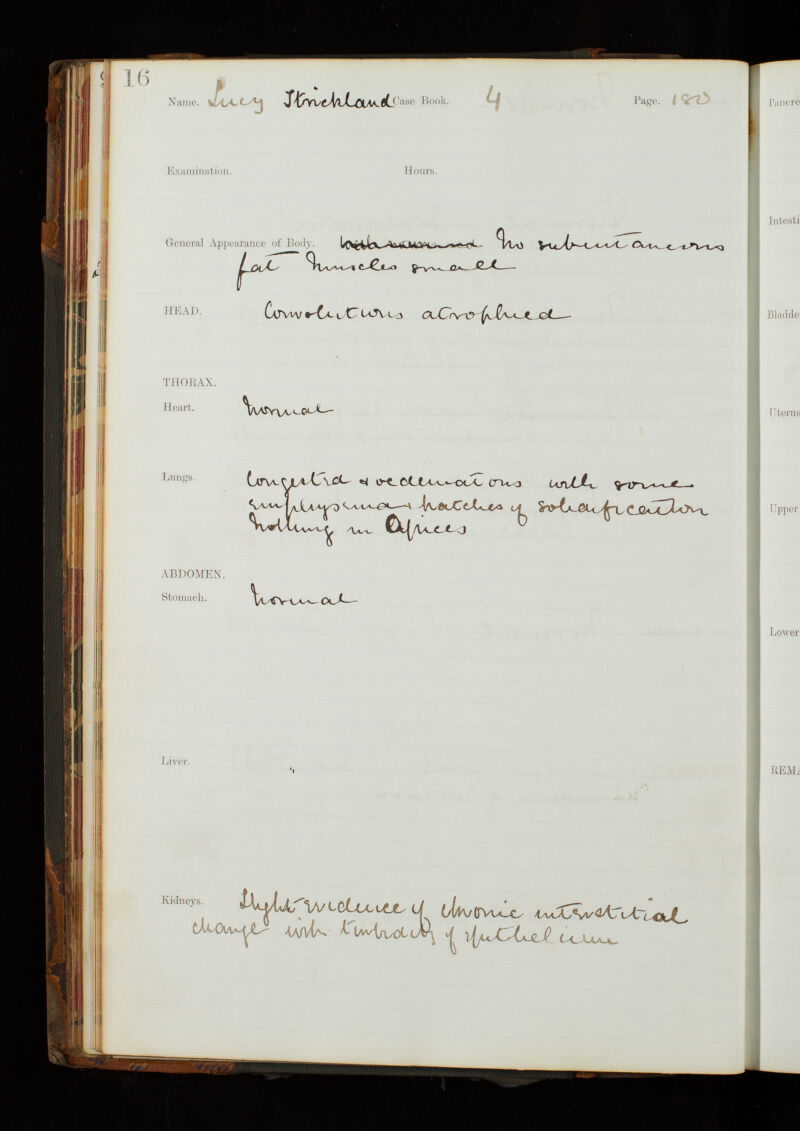 16
Name. Lucy Strickland Case Book. 4 Page. 180
Examination. Hours.
General Appearance of Body. No subcutaneous
fat Muscles small
HEAD. Convolutions atrophied
THORAX.
Heart. Normal
Lungs. Congested & oedematous with some
emphysema patches of solidification
Nothing in Apices
ABDOMEN.
Stomach. Normal
Liver. "
Kidneys. Slight evidence of chronic interstitial
change with turbidity of epithelium
Pancre
Intesti
Bladde
Uterus
Upper
Lower
REMA